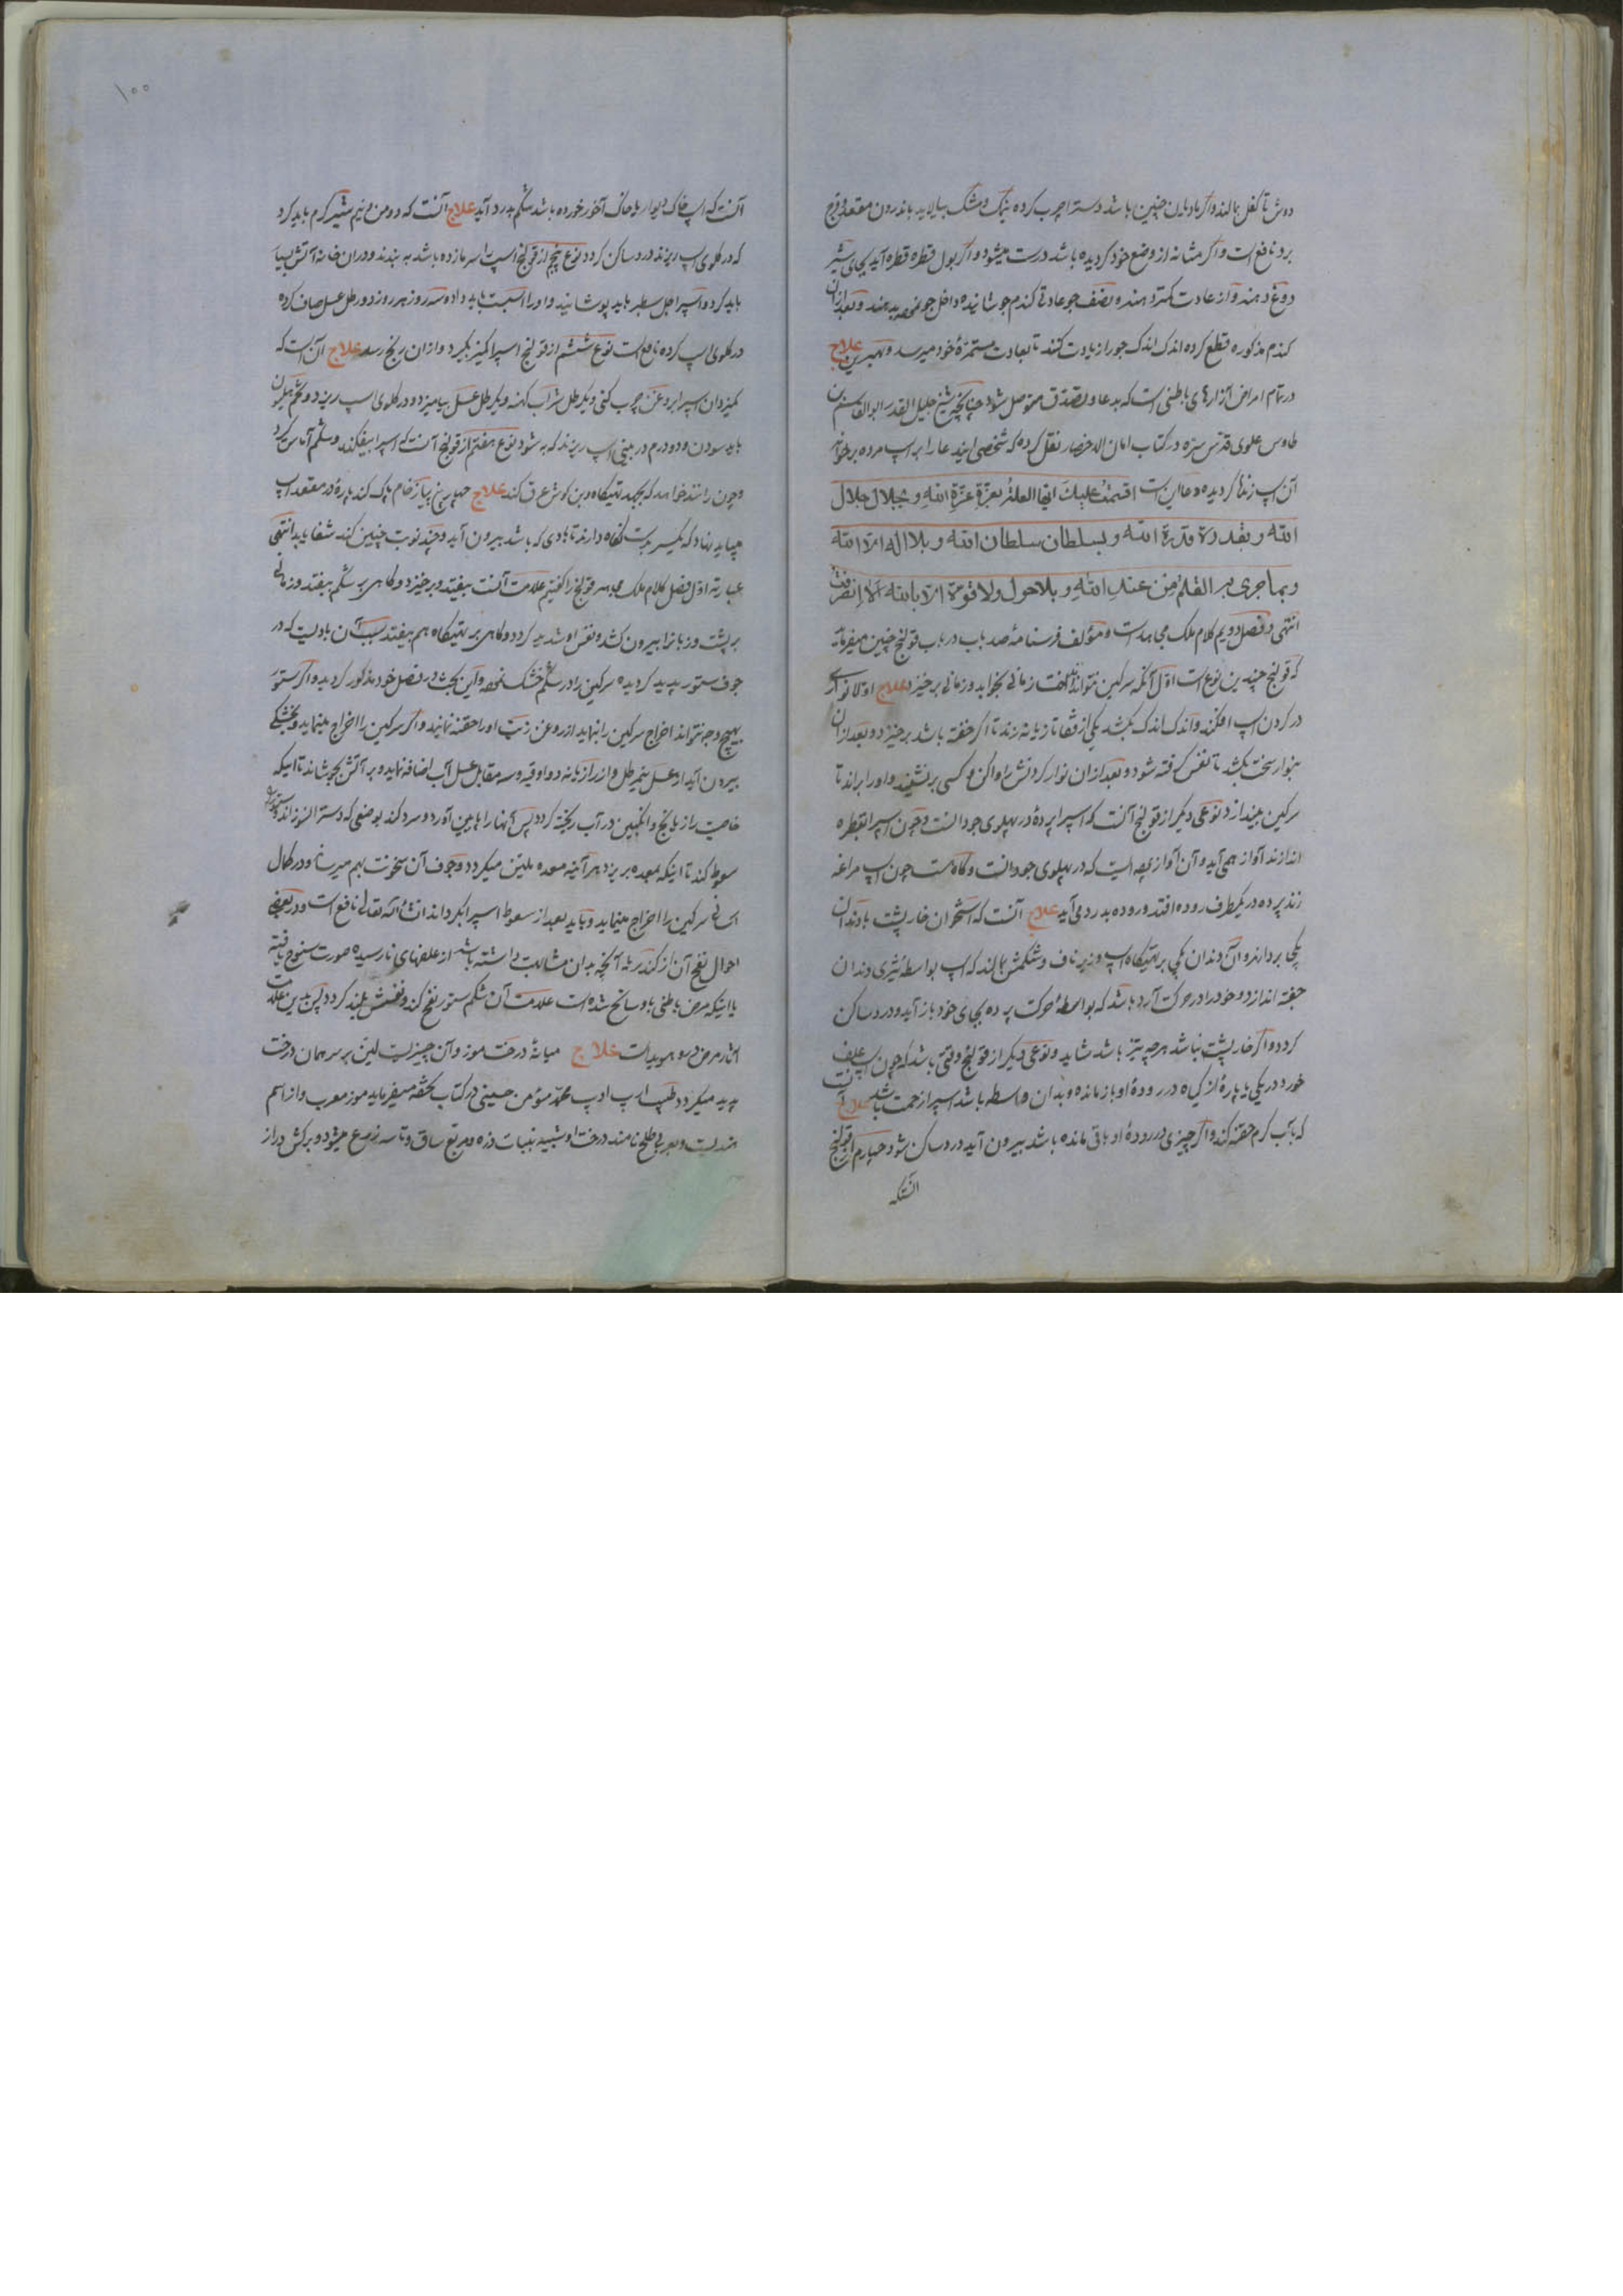 دوش تا کفل بمالند و اگر باد بدن چنین باشد دست را چرب کرده بنمک و مشک بیالاید باندرون مقعد و فرج
برد نافع است و اگر مثانه از وضع خود گردیده باشد درست میشود و اگر بول قطره قطره آید بجای شیر
دوغ دهند و از عادت کمتر دهند و نصف جو عادتی گندم جوشانیده داخل جو نموده بدهند و بعد از آن
گندم مذکوره قطع کرده اندک اندک جو را زیادت کنند تا بعادت مستمرهٔ خود میرسد و بهترین علاج
در تمام امراض آزارهای باطنی است که بدعا و تصدق متوصل شود چنانچه شیخ جلیل القدر ابوالقاسم بن
طاوس علوی قدس سره در کتاب امان الاخطار نقل کرده که شخصی این دعا را بر اسب مرده برخواند
آن اسب زنده گردیده و دعا این است اقسمت علیک ایها العلة بعزة عزة الله و بجلال جلال
الله و بقدرة قدرة الله و بسلطان سلطان الله و بلا اله الا الله
و بما جری به القلم من عند الله و بلا حول و لا قوة الا بالله الا انصرفت
انتهی و فصل دویم کلام ملک مجاهد است و مؤلف فرسنامه صد باب در باب قولنج چنین میفرماید
که قولنج چندین نوع است اول آنکه سرگین نتواند انداخت زمانی بخوابد و زمانی برخیزد علاج اولا نواری
در گردن اسب افکند و اندک اندک بکشد یکی از قفا تازیانه زند تا اگر خفته باشد برخیزد و بعد از آن
بنوار سخت بکشد تا نفس گرفته شود و بعد از آن نوار گردنش را واکن و کسی بر نشیند و او را براند تا
سرگین بیندازد نوعی دیگر از قولنج آنست که اسب را پردهٔ در پهلوی جودانست و چون اسب را بقطره
اندازند آواز همی آید و آن آواز بیضه ایست که در پهلوی جودانست و گاه هست چون اسب مراغه
زند پرده در یکطرف روده افتد و روده بدرد می آید علاج آنست که استخوان خارپشت با دندان
یکجا بردارند و آن دندان یکی بر تهیگاه اسب و زیر ناف و شکمش بمالند که اسب بواسطهٔ تیزی دندان
جفته اندازد و خود را در حرکت آرد باشد که بواسطهٔ حرکت پرده بجای خود باز آید و درد ساکن
گردد و اگر خارپشت نباشد هرچه تیز باشد شاید و نوعی دیگر از قولنج وقتی باشد که چون اسب علف
خورد در یکی یا پارهٔ از گیاه در رودهٔ او باز مانده و بدان واسطه باشد اسب را زحمت باشد علاج آنست
که بآب گرم حقنه کند و اگر چیزی در رودهٔ او باقی مانده باشد بیرون آید درد ساکن شود چهارم از قولنج
انستکه
۱۰۰
آنست که اسب خاک دیوار یا خاک آخور خورده باشد شکم بدرد آید علاج آنست که دو من و نیم شیر گرم باید کرد
که در گلوی اسب ریزند درد ساکن گردد نوع پنجم از قولنج اسب را سرما زده باشد به بندند و در آن خانه آتش بسیار
باید کرد و اسب را جل سطبر باید پوشانید و او را اسبست باید داد و سه روز هر روز دو رطل عسل صاف کرده
در گلوی اسب کرده نافع است نوع ششم از قولنج اسب را کمیز بگیرد و از آن رنج رسد علاج آن است که
کمیزدان اسب را بروغن چرب کنی و یکرطل شراب کهنه و یکرطل عسل بیامیزد و در گلوی اسب ریزد و تخم هلیون
باید سودن و دو درم در بینی اسب ریزند که به شود نوع هفتم از قولنج آنست که اسب را بیفکند و شکم آماس گیرد
و چون رانند خواهد که بجهد تهیگاه و بن گوش عرق کند علاج چهار پنج پیاز خام پاک کند پارهٔ در مقعد اسب
میباید نهاد که یکسر بدست نگاه دارند تا بادی که باشد بیرون آید و چند نوبت چنین کند شفا یابد انتهی
عبارته اول فصل کلام ملک مجاهد قولنج را گفتیم علامت آنست بیفتد و برخیزد و گاهی بر شکم بیفتد و زمانی
بر پشت و زبانرا بیرون کشد و نفس او شدید گردد و گاهی بر تهیگاه هم بیفتد سبب آن بادیست که در
جوف ستور پدید گردیده سرگین را در شکم خشک نموده و این بحث در فصل خود مذکور گردیده و اگر ستور
بهیچوجه نتواند اخراج سرگین را بنماید از روغن زیت او را حقنه نمایند و اگر سرگین را اخراج مینماید و بخشکی
بیرون آید از عسل نیمرطل و از رازیانه دو اوقیه و سه مقابل عسل آب اضافه نماید و بر آتش بجوشاند تا اینکه
خاصیت رازیانج و انگبین در آب ریخته گردد پس آنها را پایین آورد و سرد کند بوصفی که دست را نسوزاند و ستور را
سعوط کند تا اینکه بمعده بریزد هر آینه معده ملین میگردد و جوف آن سخونت بهم میرساند و در کمال
آسانی سرگین را اخراج مینماید و باید بعد از سعوط اسب را بگرداند انشاء الله تعالی نافع است و در بعضی
احوال نفخ آن از کندر نه آنچه بدان مشابهت داشته باشد از علفهای نارسیده صورت سنوح یافته
یا اینکه مرض باطنی باو سانح شده است علامت آن شکم ستور نفخ کند و نفسش بلند گردد پس بدین علامت
آثار مرض درو هویداست علاج میانهٔ درخت موز و آن چیزیست لین بر سر همان درخت
پدید میگردد طبیب اریب ادیب محمد مؤمن حسینی در کتاب تحفه میفرماید موز معرب و از اسم
هندیست و بعربی طلح نامند درخت او شبیه بنبات ذره و مربع ساق و تا سه زرع میشود و برگش دراز